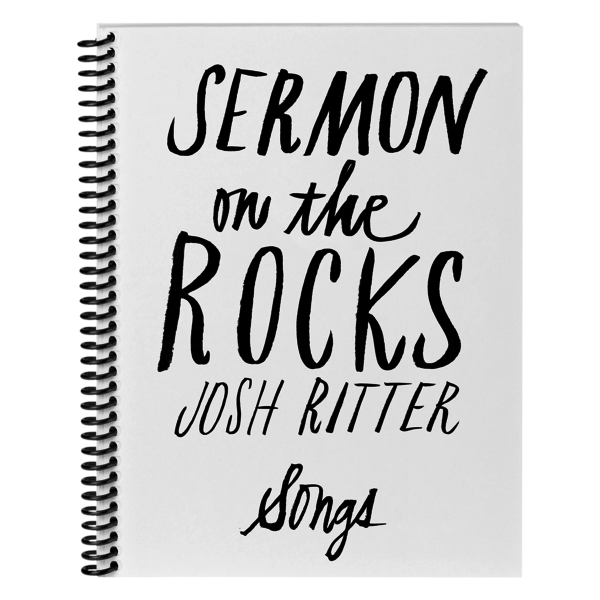 SERMON
on the
ROCKS
JOSH RITTER
Songs